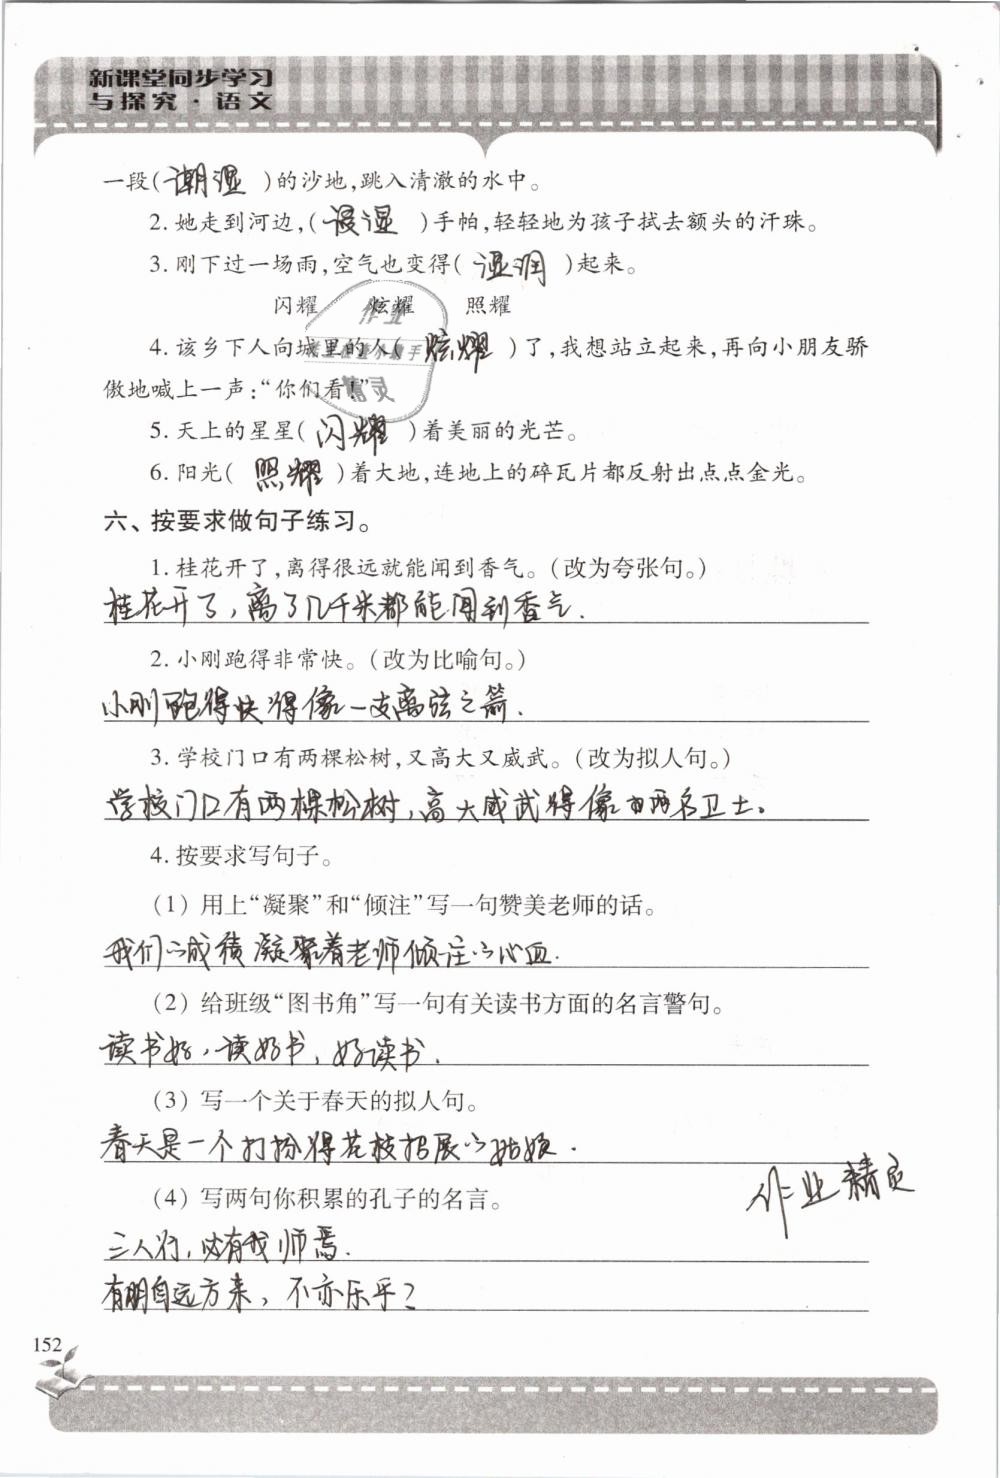 新课堂同步学习
与探究·语文
一段(潮湿)的沙地,跳入清澈的水中。
2. 她走到河边,(浸湿)手帕,轻轻地为孩子拭去额头的汗珠。
3. 刚下过一场雨,空气也变得(湿润)起来。
闪耀 炫耀 照耀
4. 该乡下人向城里的人(炫耀)了,我想站立起来,再向小朋友骄
傲地喊上一声:“你们看!”
5. 天上的星星(闪耀)着美丽的光芒。
6. 阳光(照耀)着大地,连地上的碎瓦片都反射出点点金光。
六、按要求做句子练习。
1. 桂花开了,离得很远就能闻到香气。(改为夸张句。)
桂花开了,离了几千米都能闻到香气.
2. 小刚跑得非常快。(改为比喻句。)
小刚跑得快得像一支离弦之箭.
3. 学校门口有两棵松树,又高大又威武。(改为拟人句。)
学校门口有两棵松树,高大威武得像 两名卫士。
4. 按要求写句子。
(1) 用上“凝聚”和“倾注”写一句赞美老师的话。
我们的成绩凝聚着老师倾注的心血.
(2) 给班级“图书角”写一句有关读书方面的名言警句。
读书好,读好书,好读书.
(3) 写一个关于春天的拟人句。
春天是一个打扮得花枝招展的姑娘.
(4) 写两句你积累的孔子的名言。
作业精灵
三人行,必有我师焉.
有朋自远方来,不亦乐乎?
152